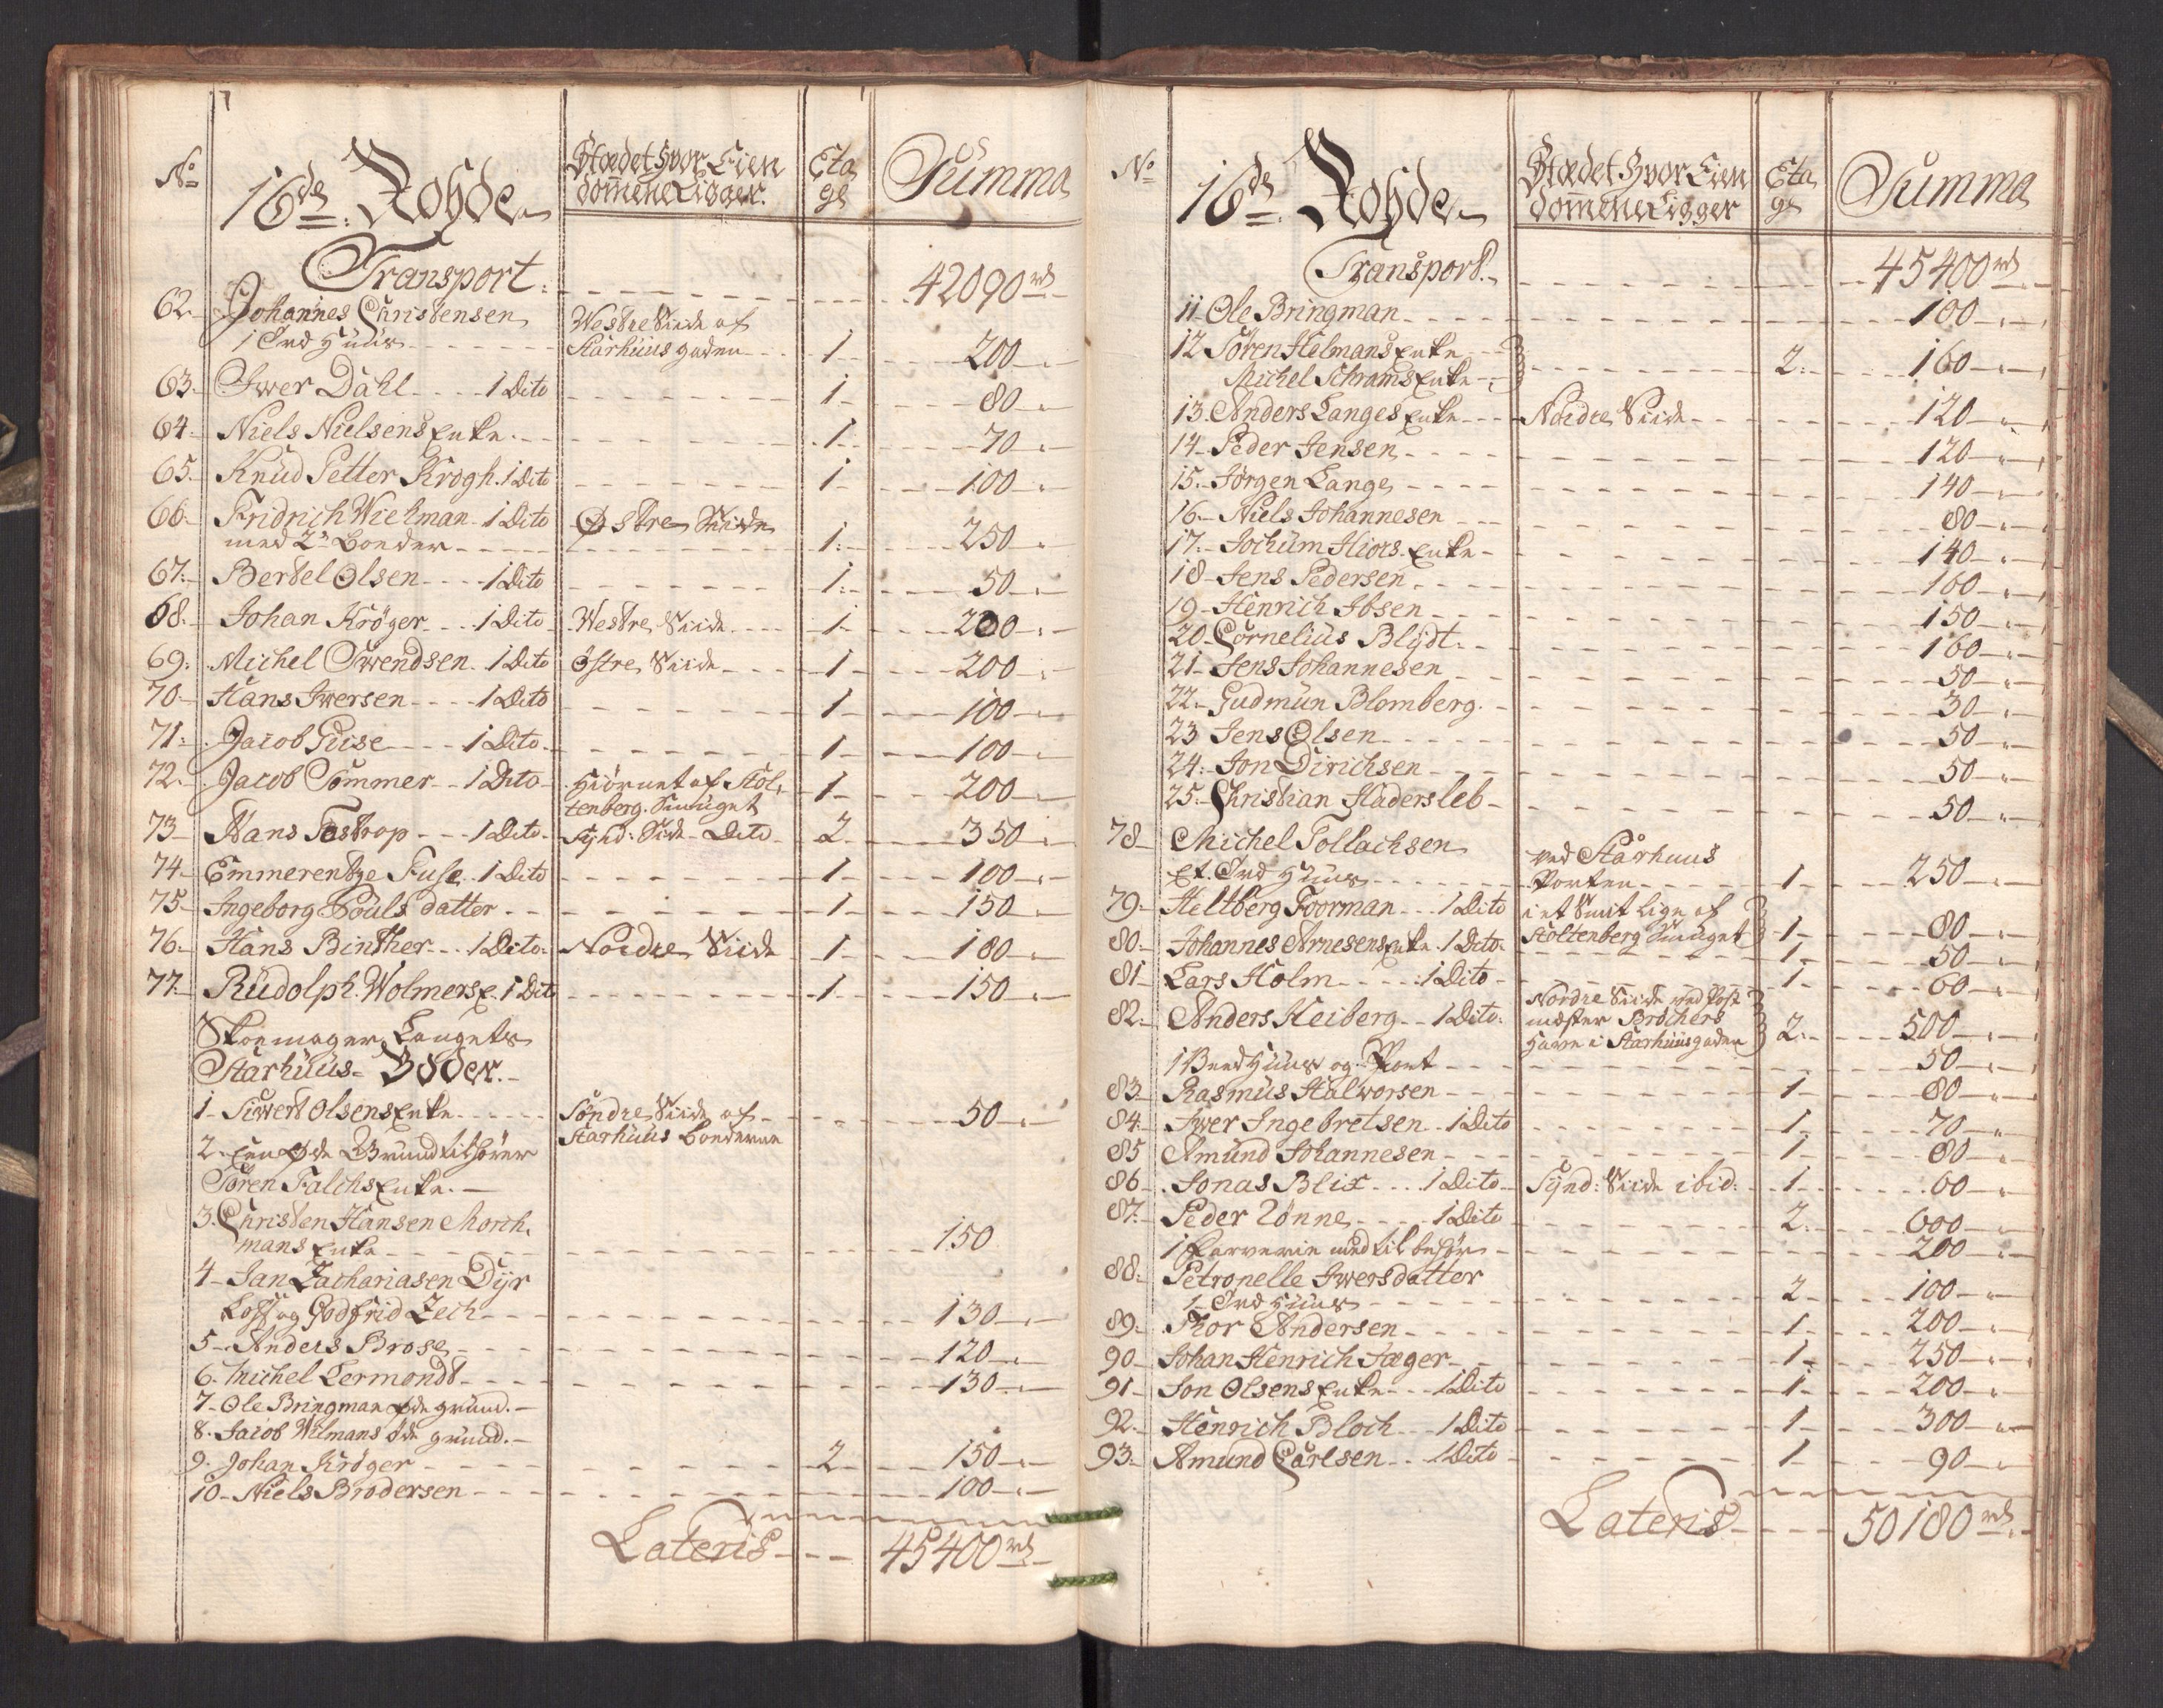 No 16de Rohde Stædet hvor Eien Eta Summa
domene Ligger. ge
Transport. 42090 rd
62. Johannes Christensen Westre Siide af
1 Brd Huus Starhuus gaden 1 200
63. Iwer Dahl 1 Dito 1 80
64. Niels Nielsens Enke 1 70
65. Knud Petter Krogh. 1 Dito 1 100
66. Fridrich Wichman 1 Dito Østre Siide
med 2de boeder 1 250
67. Bertel Olsen 1 Dito 1 50
68. Johan Kröger 1 Dito Westre Siide 1 200
69. Michel Swendsen 1 Dito Østre Siide 1 200
70. Hans Iwersen 1 Dito 1 100
71. Jacob Puse 1 Dito 1 100
72. Jacob Sommer 1 Dito Hiörnet af Stol 1 200
tenberg. Smuget
73 Hans Tostrop 1 Dito Synd: Side Dito 2 350
74. Emmerentze Fuse 1 Dito 1 100
75 Ingeborg Pouls datter 1 150
76. Hans Binther 1 Dito. Nordre Siide 1 180
77 Rudolph Wolmers E. 1 Dito 1 150
Skoemager Laugets
Starhuus Boder.
1 Siwert Olsens Enke Söndre Siide af 50
Starhuus boederne
2. Een Øde Grund tilhörer
Sören Falchs Enke.
3. Christen Hansen Morth
mans Enke 150
4 Jan Zachariasen Dyr
koff og Godfrid Zech 130
5 Anders Brose 120
6. Michel Lermondt 130
7 Ole Bringman øde grund.
8. Jacob Wilmans öde grund.
9. Johan Kröger 2 150
10 Niels Brodersen 100
Lateris 45400 rd
No 16de Rohde Stædet hvor Eien Eta Summa
domene Ligger ge
Transport. 45400 rd
11 Ole Bringman 100
12 Sören Helmans Enke 2 160
Michel Schrams Enke
13. Anders Langes Enke Nordre Siide 120
14 Peder Jensen 120
15. Jörgen Lange 140
16. Niels Johannesen 80
17. Jochum Hiors Enke 140
18 Jens Pedersen 100
19 Henrich Ibsen 150
20 Cornelius Blydt. 160
21 Jens Johannesen 50
22. Gudmun Blomberg. 30
23 Jens Olsen 50
24. Jon Dirichsen 50
25. Christian Hadersleb 50
78 Michel Tollachsen ved Starhuus
Et. Brd Huus Porten 1 250
79 Heltberg Foorman 1 Dito i et Smit lige af 1 80
80. Johannes Arnesens Enke 1 Dito. Stoltenberg Smuget 1 50
81 Lars Holm 1 Dito 1 60
82. Anders Heiberg 1 Dito. Nordre Siide ved Post
mester Bröchers 2 500
Have i Starhuusgaden
1 Brend Huus og Port 50
83 Rasmus Halworsen 1 80
84. Iwer Ingebretsen 1 Dito 1 70
85 Amund Johannesen 1 80
86 Jonas Blix 1 Dito Synd: Siide ibid. 1 60
87. Peder Rönne 1 Dito 2 600
1 Barverie med tilbehör 200
88. Petronelle Iwersdatter
1 Brd Huus 2 100
89. Thor Andersen 1 200
90 Johan Henrich Jæger 1 250
91 Jon Olsens Enke 1 Dito 1 200
92. Henrich Bloch 1 Dito 1 300
93. Amund Carlsen 1 Dito 1 90
Lateris 50180 rd